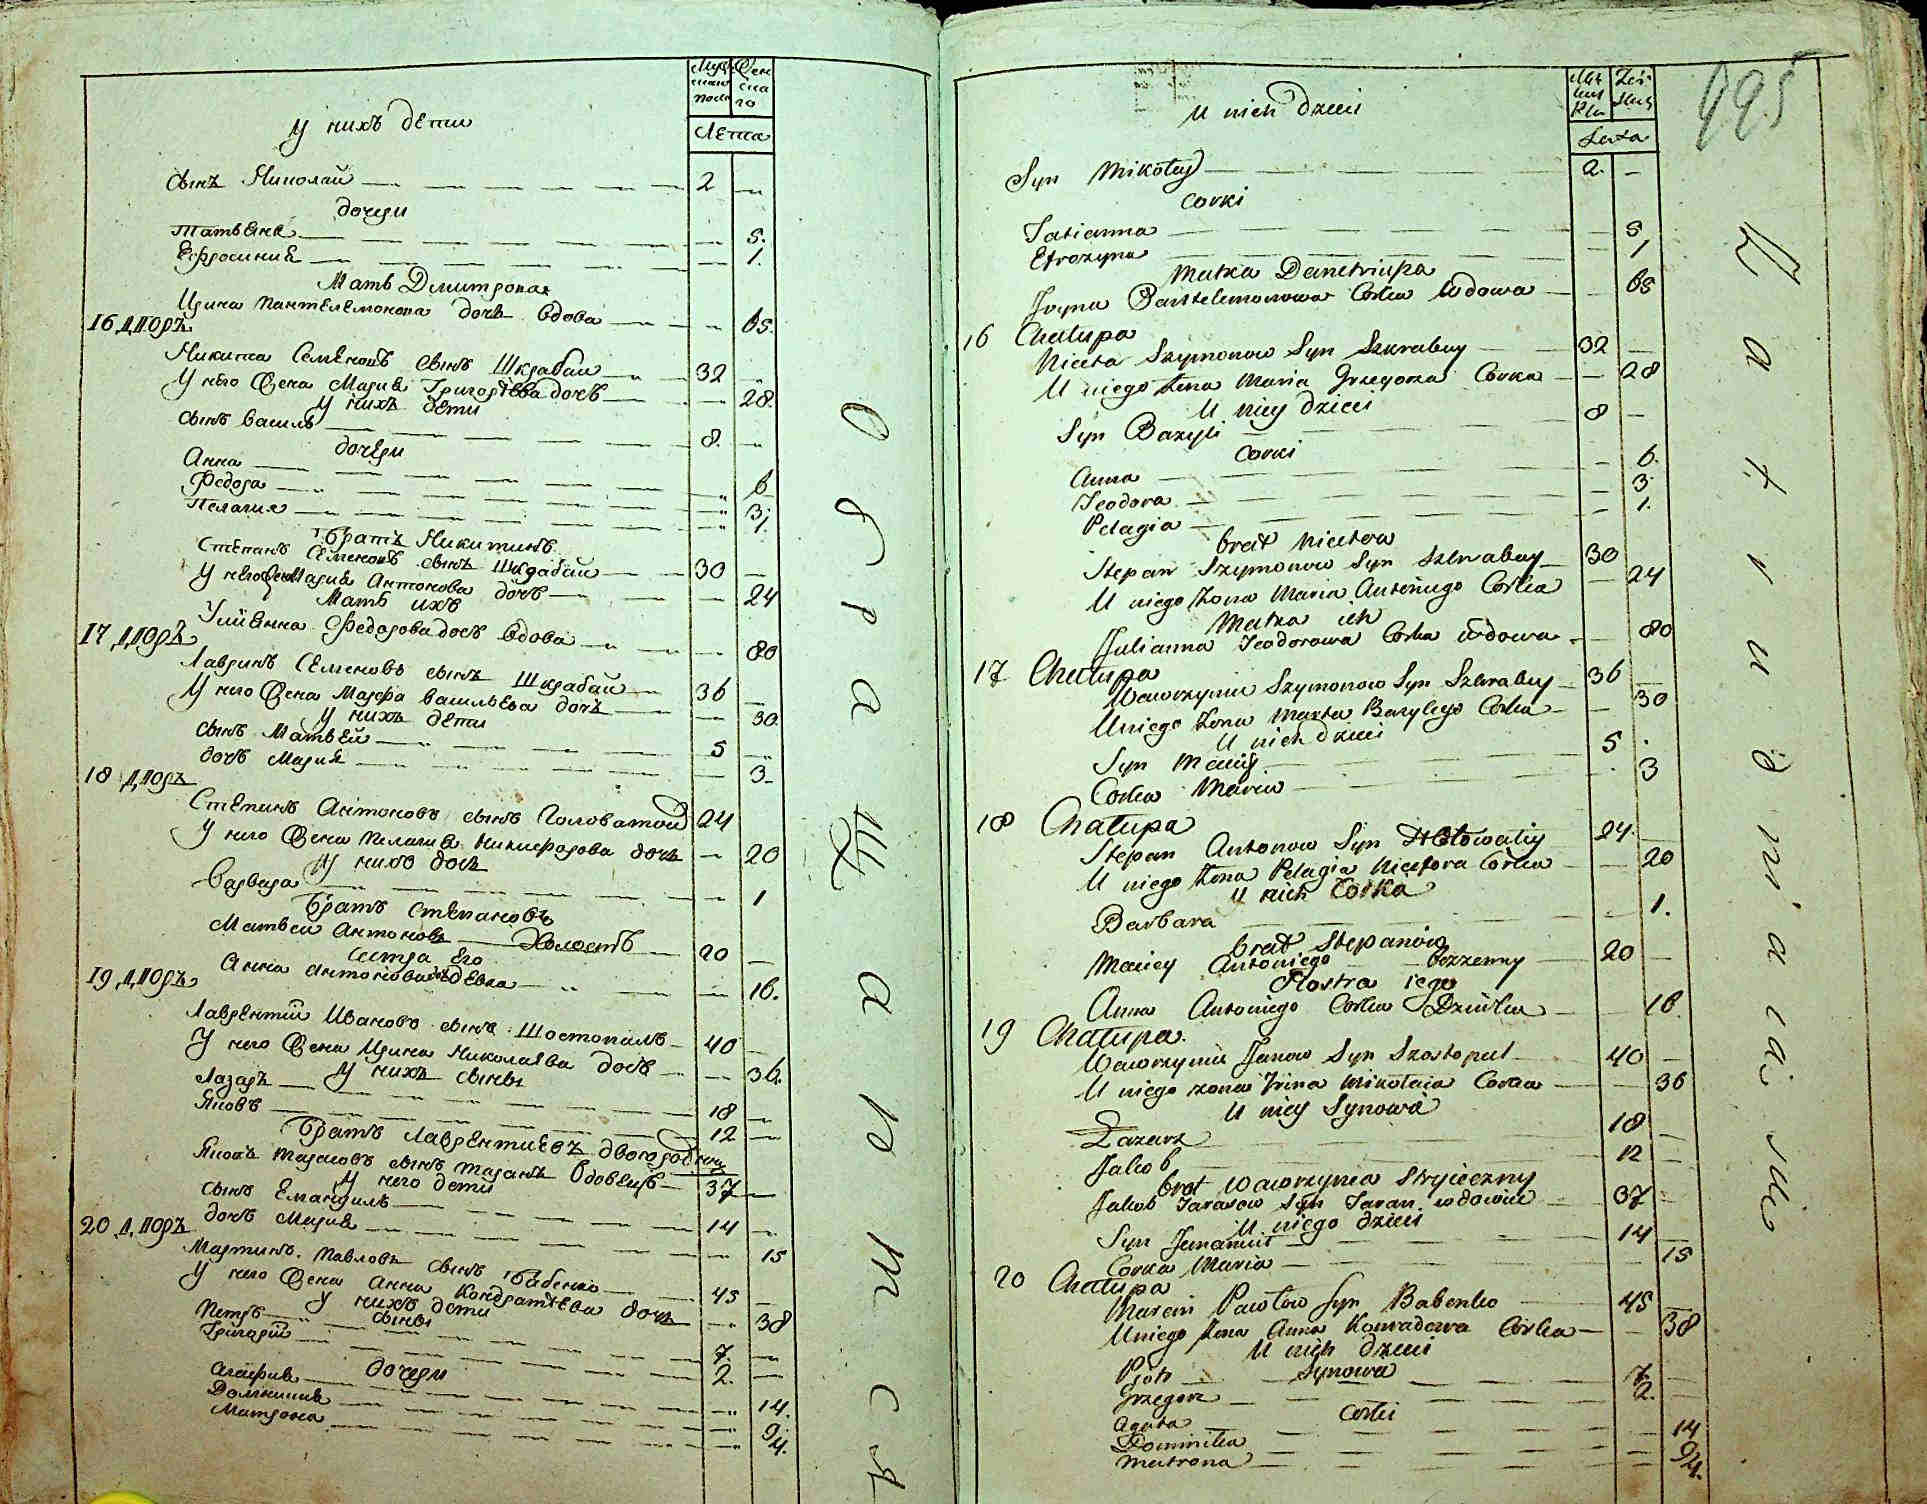 У нихъ дети
Мужескаго пола
Женскаго
Лета
Сынъ Николай 2
дочери
Татьяна 5.
Ефросиния 1.
Мать Дмитрова
Ирина Пантелемонова дочь вдова 65.
16 дворъ
Никита Семеновъ сынъ Шкрабай 32
У него жена Мария Григорьева дочь 28.
У нихъ дети
Сынъ Василь 8.
дочери
Анна 6
Федора 3.
Пелагия 1.
Братъ Никитинъ
Степанъ Семеновъ сынъ Шкрабай 30
У него жена Мария Антонова дочь 24
Мать ихъ
Улияна Федорова дочь вдова 80
17 дворъ
Лавринъ Семеновъ сынъ Шкрабай 36
У него жена Марфа Васильева дочь 30
У нихъ дети
Сынъ Матвей 5
дочь Мария 3
18 дворъ
Степанъ Антоновъ сынъ Головатой 24
У него жена Пелагия Никифорова дочь 20
У нихъ дочь
Варвара 1
Братъ Степановъ
Матвей Антоновъ Холостъ 20
Сестра Его
Анна Антонова девка 16.
19 дворъ
Лаврентий Ивановъ сынъ Шостопалъ 40
У него жена Ирина Николаева дочь 36.
У нихъ сыны
Лазарь 18
Яковъ 12
Братъ Лаврентиевъ двоюродный
Яковъ Тарасовъ сынъ Таранъ вдовецъ 37
У него дети
Сынъ Емануилъ 14
дочь Мария 15
20 дворъ
Мартинъ Павловъ сынъ Бабенко 45
У него жена Анна Кондратьева дочь 38
У нихъ дети
сыны
Петръ 7
Григорий 2.
дочери
Агафия 14.
Домникия 9
Матрона 4.
Обращаются
U nich Dzieci
Lata
495
Syn Mikołay 2.
Corki
Tatianna 5
Efrozyna 1
Matka Demetriusza
Iryna Pantelemonowa Corka Wdowa 65
16 Chałupa
Niceta Szymonow Syn Szkrabay 32
U niego Żona Maria Grzegorza Corka 28
U niey dzieci
Syn Bazyli 8
Corki
Anna 6.
Teodora 3.
Pelagia 1.
brat Nicetow
Stepan Szymonow Syn Szkrabay 30
U niego Żona Maria Antoniego Corka 24
Matka ich
Julianna Teodorowa Corka wdowa 80
17 Chałupa
Wawrzyniec Szymonow Syn Szkrabay 36
U niego Żona Marta Bazylego Corka 30
U nich dzieci
Syn Maciey 5
Corka Maria 3
18 Chałupa
Stepan Antonow Syn Hołowatiy 24.
U niego Żona Pelagia Nicefora Corka 20
U nich Corka
Barbara 1.
brat Stepanow
Maciey Antoniego bezzenny 20
Siostra iego
Anna Antoniego Corka Dziewka 16
19 Chałupa.
Wawrzyniec Janow Syn Szostopal 40
U niego zona Irina Mikołaia Corka 36
U niey Synowa
Łazarz 18
Jakob 12
brat Wawrzynca Stryieczny
Jakob Tarasow Syn Taran wdowiec 37
U niego dzieci
Syn Jemanuil 14
Corka Maria 15
20 Chałupa
Marcin Pawłow Syn Babenko 45
U niego Żona Anna Konradowa Corka 38
U nich dzieci
Synowa
Piotr 7.
Grzegorz 2.
Corki
Agata 14
Dominika 9
Matrona 4.